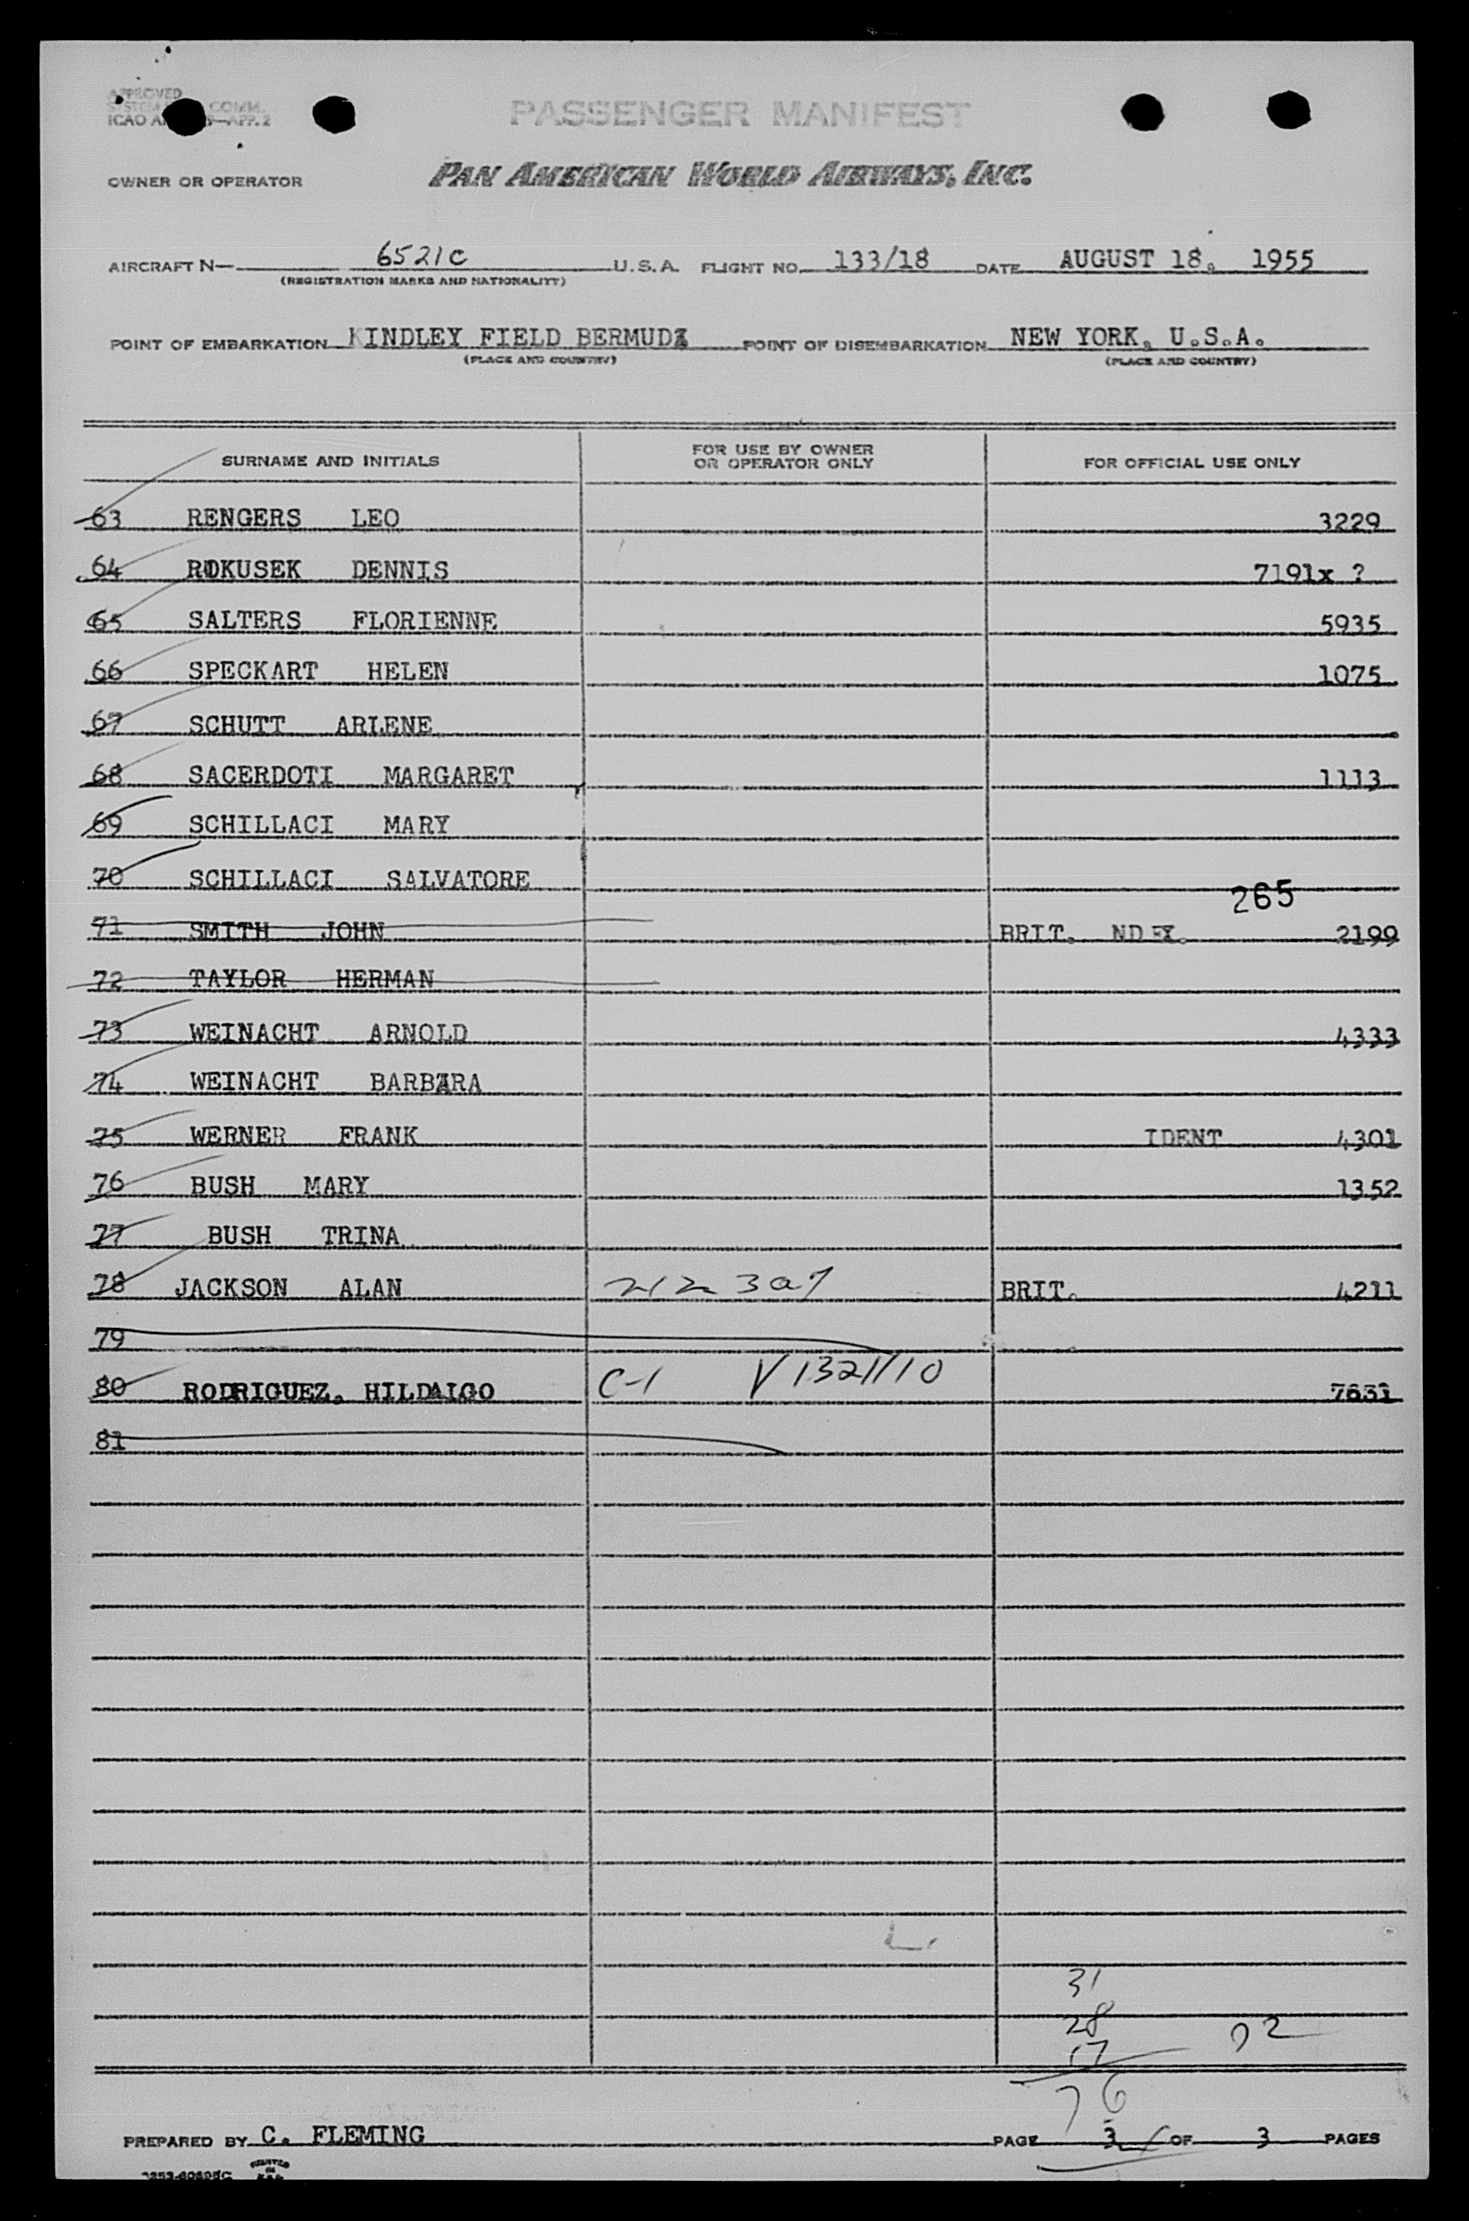 APPROVED
COMM.
ICAO APP. 2
PASSENGER MANIFEST
OWNER OR OPERATOR PAN AMERICAN WORLD AIRWAYS, INC.
AIRCRAFT N— 6521C U.S.A. FLIGHT NO. 133/18 DATE AUGUST 18. 1955
(REGISTRATION MARKS AND NATIONALITY)
POINT OF EMBARKATION KINDLEY FIELD BERMUDA POINT OF DISEMBARKATION NEW YORK, U.S.A.
(PLACE AND COUNTRY) (PLACE AND COUNTRY)
SURNAME AND INITIALS FOR USE BY OWNER OR OPERATOR ONLY FOR OFFICIAL USE ONLY
63 RENGERS LEO 3229
64 ROKUSEK DENNIS 7191x ?
65 SALTERS FLORIENNE 5935
66 SPECKART HELEN 1075
67 SCHUTT ARLENE
68 SACERDOTI MARGARET 1113
69 SCHILLACI MARY
70 SCHILLACI SALVATORE
265
71 SMITH JOHN BRIT. NDEX. 2199
72 TAYLOR HERMAN
73 WEINACHT ARNOLD 4333
74 WEINACHT BARBARA
75 WERNER FRANK IDENT 4301
76 BUSH MARY 1352
77 BUSH TRINA
78 JACKSON ALAN BRIT. 4211
79
80 RODRIGUEZ, HILDALGO C-1 V1321110 7631
81
31
28
17 72
76
PREPARED BY C. FLEMING PAGE 3 OF 3 PAGES